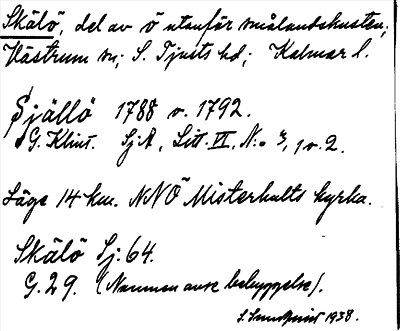 Skälö, del av ö utanför smålandskusten;
Västrum sn; S. Tjusts hd; Kalmar l.
Själlö 1788 o. 1792.
G. Klint. SjA, Litt. VI, N:o 3, 1 o. 2.
Läge 14 km. NNÖ Misterhults kyrka.
Skälö Sj. 64.
G. 29. (Namnen avse bebyggelse).
S. Sundquist 1938.